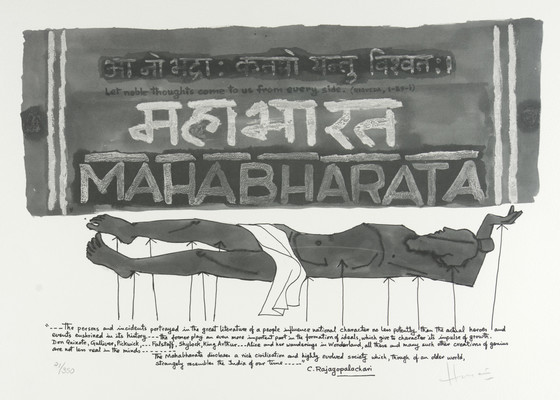 आ नो भद्राः क्रतवो यन्तु विश्वतः।
Let noble thoughts come to us from every side.
महाभारत
MAHABHARATA
"---The persons and incidents portrayed in the great literature of a people influence national character no less potently than the actual heroes and
events enshrined in its history---the former play an even more important part in the formation of ideals, which give to character its impulse of growth.
Don Quixote, Gulliver, Pickwick,... Falstaff, Shylock, King Arthur... Alice and her wanderings in Wonderland, all these and many such other creations of genius
are not less real in the minds------
The Mahabharata discloses a rich civilization and highly evolved society which, though of an older world,
strangely resembles the India of our time-----"
C. Rajagopalachari
/300
Husain